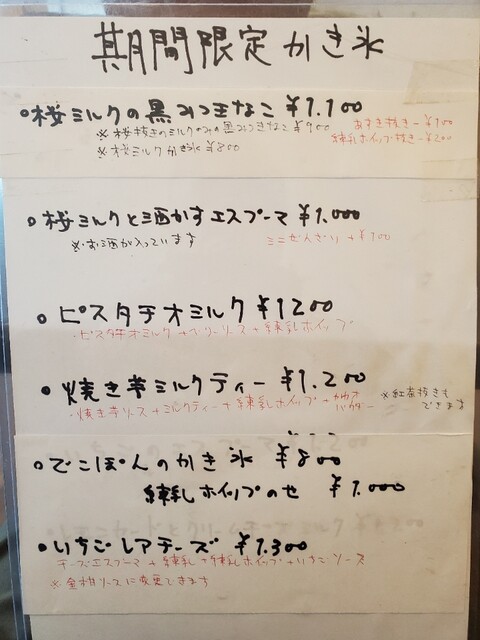 期間限定かき氷
桜ミルクの黒みつきなこ ¥1.100
※桜抜きのミルクのみの黒みつきなこ ¥900
あずき抜き -¥100
※桜ミルクかき氷 ¥800
練乳ホイップ抜き -¥200
桜ミルクと酒かすエスプーマ ¥1.000
※お酒が入っています
ミニぜんざい +¥100
ピスタチオミルク ¥1200
・ピスタチオミルク+ベリーソース+練乳ホイップ
焼き芋ミルクティー ¥1.200
※紅茶抜きもできます
・焼き芋ソース+ミルクティー+練乳ホイップ+カカオパウダー
でこぽんのかき氷 ¥800
練乳ホイップのせ ¥1.000
いちごレアチーズ ¥1.300
チーズエスプーマ+練乳+練乳ホイップ+いちごソース
※金柑ソースに変更できます